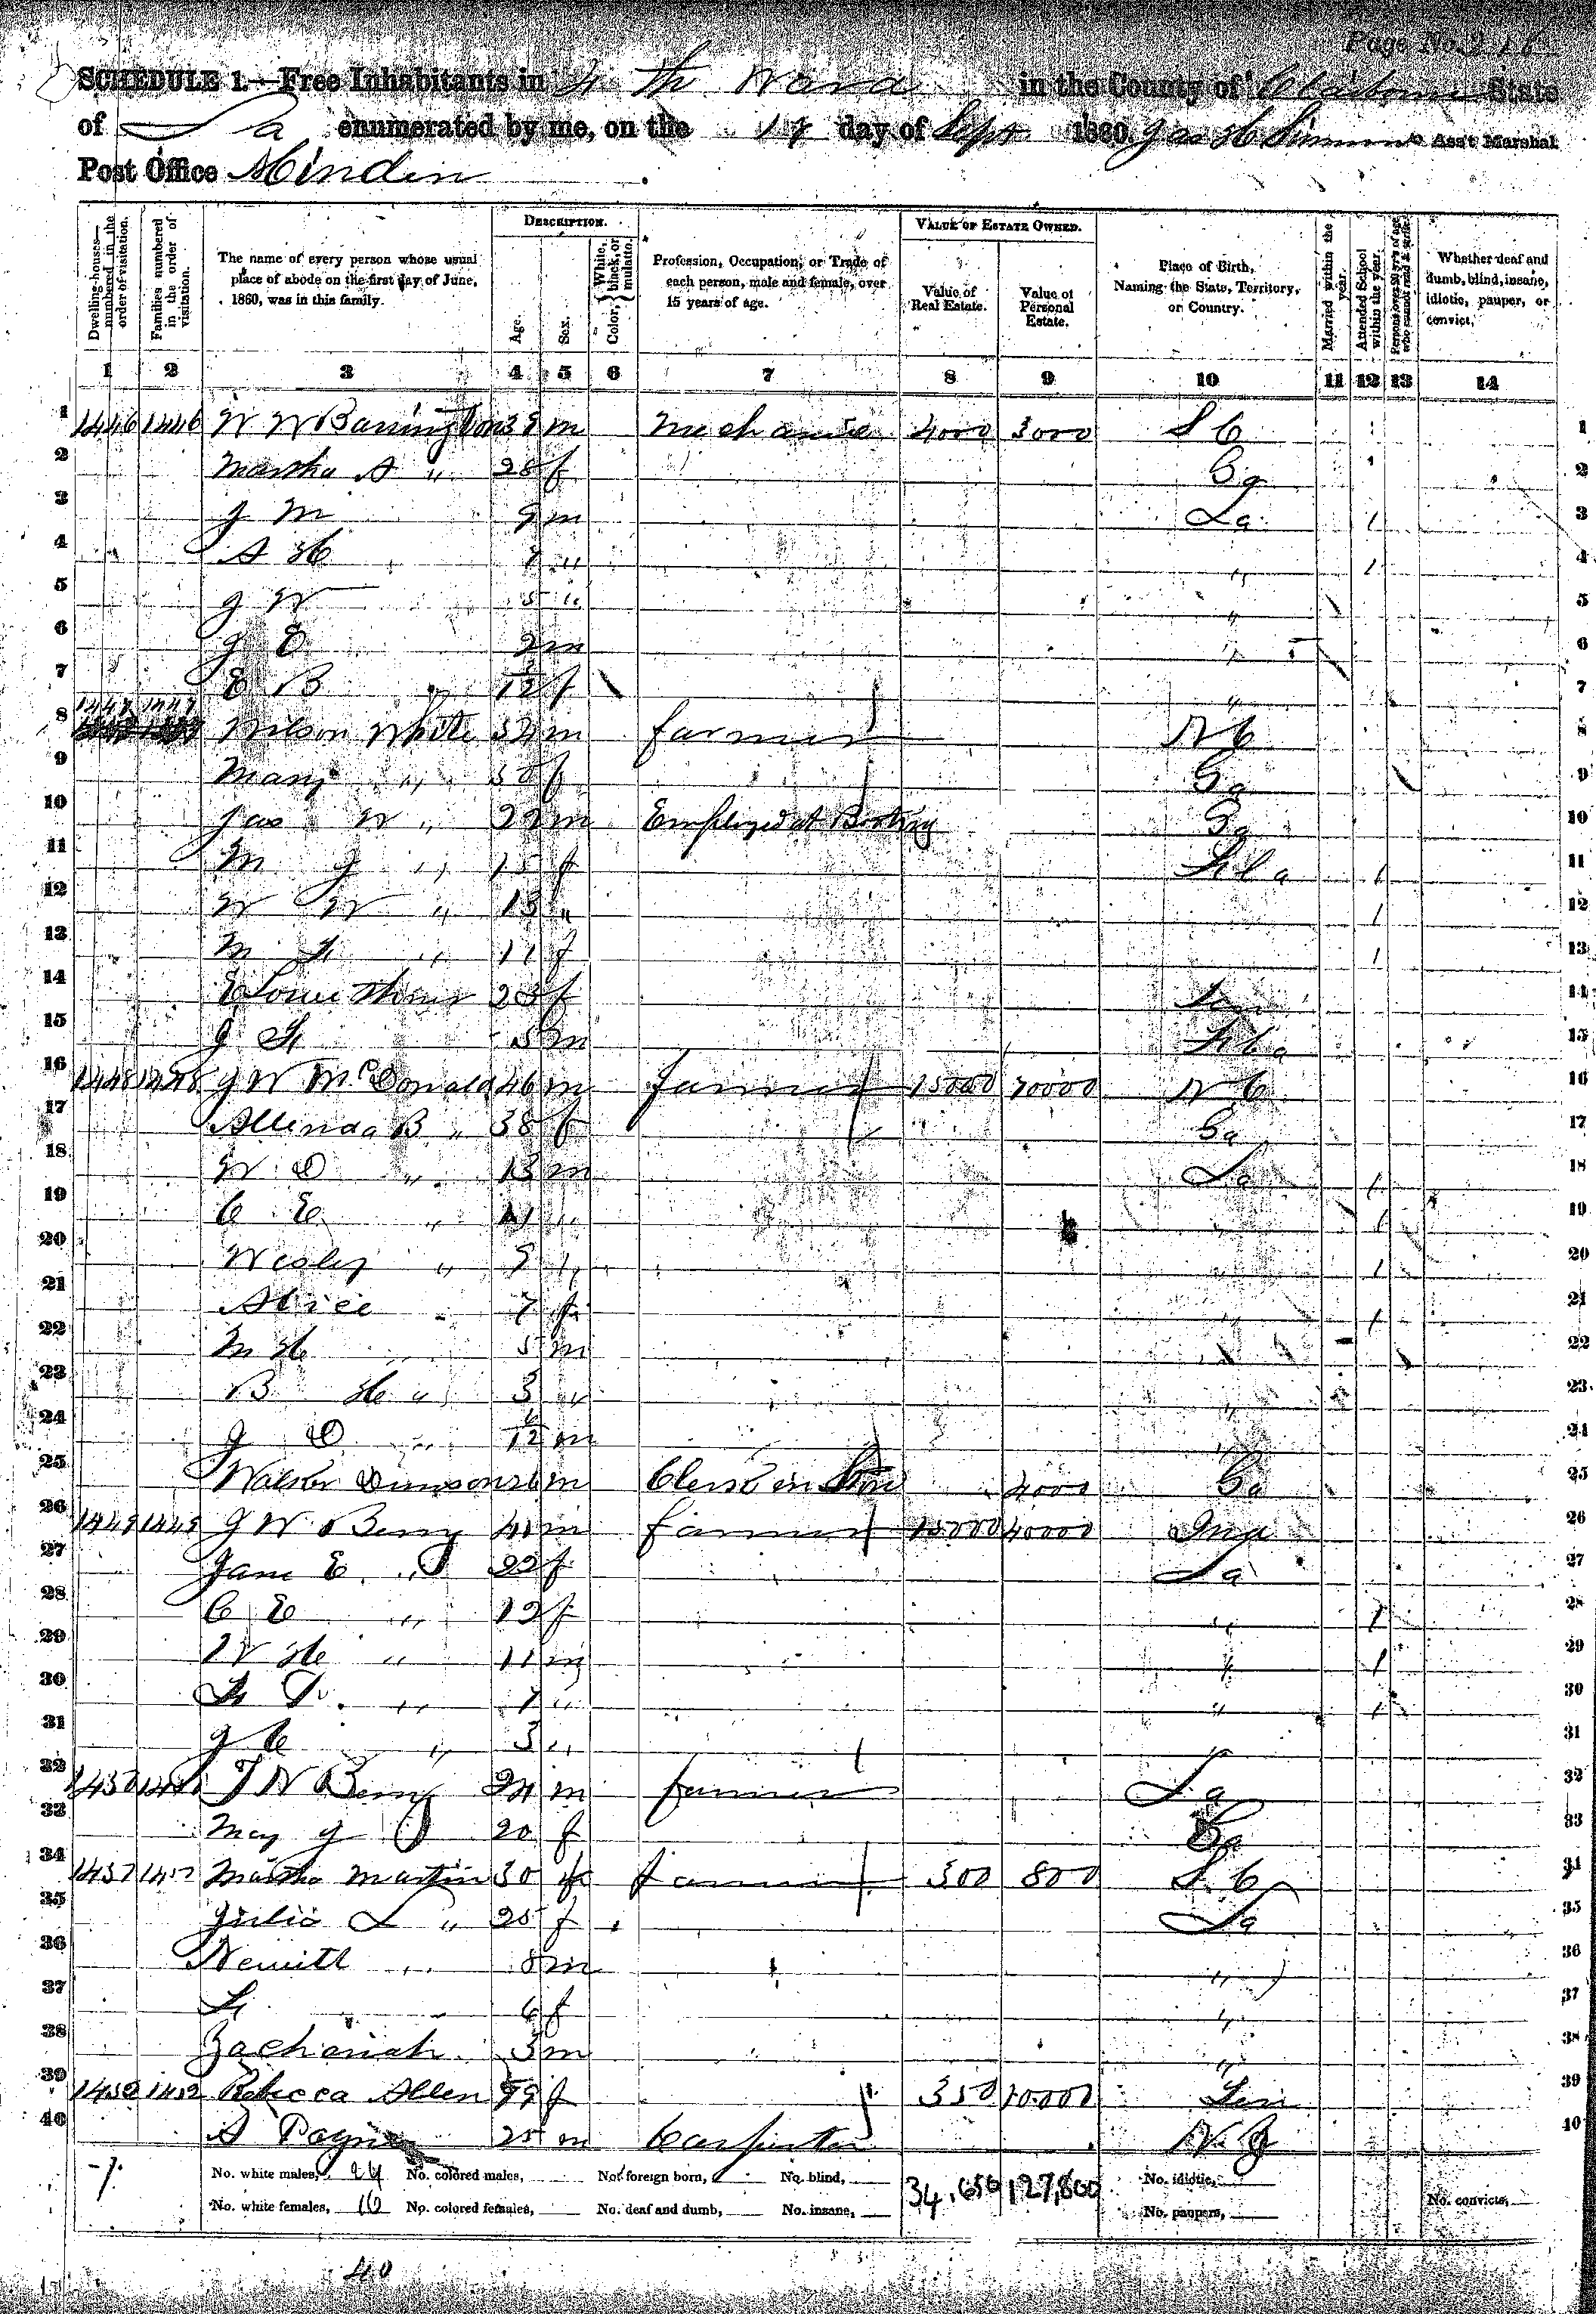 Page No. 216
SCHEDULE 1.—Free Inhabitants in 4th Ward in the County of Claiborne State
of La enumerated by me, on the 17 day of Sept 1860. Jas H Simmons Ass't Marshal
Post Office Minden
Dwelling-houses—numbered in the order of visitation.
Families numbered in the order of visitation.
The name of every person whose usual place of abode on the first day of June, 1860, was in this family.
DESCRIPTION.
Age.
Sex.
Color, White, black, or mulatto.
Profession, Occupation, or Trade of each person, male and female, over 15 years of age.
VALUE OF ESTATE OWNED.
Value of Real Estate.
Value of Personal Estate.
Place of Birth, Naming the State, Territory, or Country.
Married within the year.
Attended School within the year.
Persons over 20 y'rs of age who cannot read & write.
Whether deaf and dumb, blind, insane, idiotic, pauper, or convict.
1 2 3 4 5 6 7 8 9 10 11 12 13 14
1 1446 1446 W W Barrington m Mechanic 4000 3000 S C 1
2 Martha A " 28 f Ga 2
3 J M 9 m La / 3
4 A H 7 " " / 4
5 J W 5 " " 5
6 J E 2 m " 6
7 E B " /12 f " 7
8 1447 1447 Wilson White 52 m farmer N C 8
9 Mary " 50 f Ga 9
10 Jas W " 22 m Employed at Ga 10
11 M J " 15 f Ala / 11
12 W W " 13 " / 12
13 M " 11 f / 13
14 23 f 14
15 5 m Ala 15
16 1448 1448 J W McDonald 46 m farmer 15000 70000 N C 16
17 B " 38 f Ga 17
18 W D " 13 m La / 18
19 C E " 11 " / 19
20 Wesley " 9 " " / 20
21 Alice " 7 f / 21
22 M H " 5 m " 22
23 B H " 3 " " 23
24 J D " /12 m " 24
25 26 m Clerk in Store 4000 Ga 25
26 1449 1449 J W Berry 41 m farmer 15000 40000 26
27 Jane E " 22 f La 27
28 C E " 12 f " / 28
29 W H " 11 m " / 29
30 " 7 " " / 30
31 J C " 3 " " 31
32 1450 J W Berry 24 m farmer La 32
33 May J 20 f Ga 33
34 1451 Martha Martin 30 farmer 300 800 S. C 34
35 Julia L " 25 f La 35
36 " 8 m " 36
37 " 6 f " 37
38 Zachariah 3 m " 38
39 1452 1452 Rebecca Allen f 350 10000 Ten 39
40 S Payne 25 m Carpenter N. J 40
No. white males, 24 No. colored males, No. foreign born, No. blind, 34,650 127,800 No. idiotic,
No. white females, 16 No. colored females, No. deaf and dumb, No. insane, No. paupers, No. convicts,
40